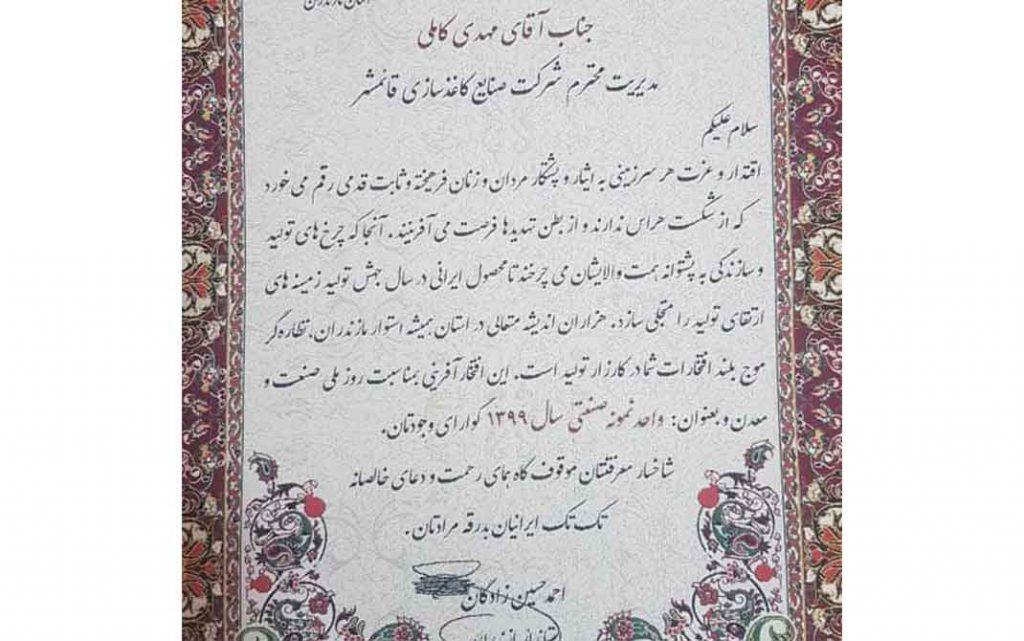 استان مازندران
جناب آقای مهدی کاملی
مدیریت محترم شرکت صنایع کاغذسازی قائمشهر
سلام علیکم
اقتدار و عزت هر سرزمینی به ایثار و پشتکار مردان و زنان فرهیخته و ثابت قدمی رقم می خورد
که از شکست هراس ندارند و از بطن تهدیدها فرصت می آفرینند. آنجا که چرخ های تولید
و سازندگی به پشتوانه همت والایشان می چرخند تا محصول ایرانی در سال جهش تولید زمینه های
ارتقای تولید را متجلی سازد. هزاران اندیشه متعالی در استان همیشه استوار مازندران، نظاره گر
موج بلند افتخارات شما در کارزار تولید است. این افتخار آفرینی بمناسبت روز ملی صنعت و
معدن و بعنوان: واحد نمونه صنعتی سال ۱۳۹۹ گوارای وجودتان.
شاخسار معرفتتان موقوف گاه همای رحمت و دعای خالصانه
تک تک ایرانیان بدرقه مرادتان.
احمد حسین زادگان
استاندار مازندران